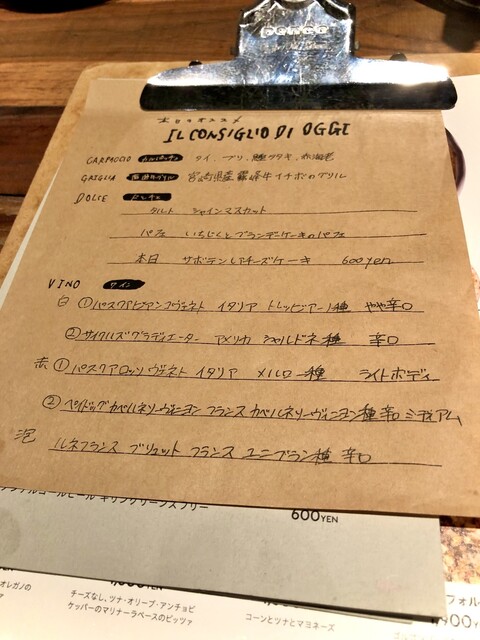 本日のオススメ
IL CONSIGLIO DI OGGI
CARPACCIO カルパッチョ タイ、ブリ、鰹タタキ、赤海老
GRIGLIA 宮崎県産霧峰牛イチボのグリル
DOLCE ドルチェ
タルト シャインマスカット
パフェ いちじくとブランデーケーキのパフェ
本日 サボテンレアチーズケーキ 600yen
VINO ワイン
白 ①パスクアビアンコヴェネト イタリア トレッビアーノ種 やや辛口
②サイクルズグラディエーター アメリカ シャルドネ種 辛口
赤 ①パスクアロッソヴェネト イタリア メルロー種 ライトボディ
②ペイドックカベルネソーヴィニヨン フランス カベルネソーヴィニヨン種 辛口 ミディアム
泡 ルネフランス ブリュット フランス ユニブラン種 辛口
600YEN
オレガノの
チーズなし、ツナ・オリーブ・アンチョビ
ケッパーのマリナーラベースのピッツァ
コーンとツナとマヨネーズ
フォル